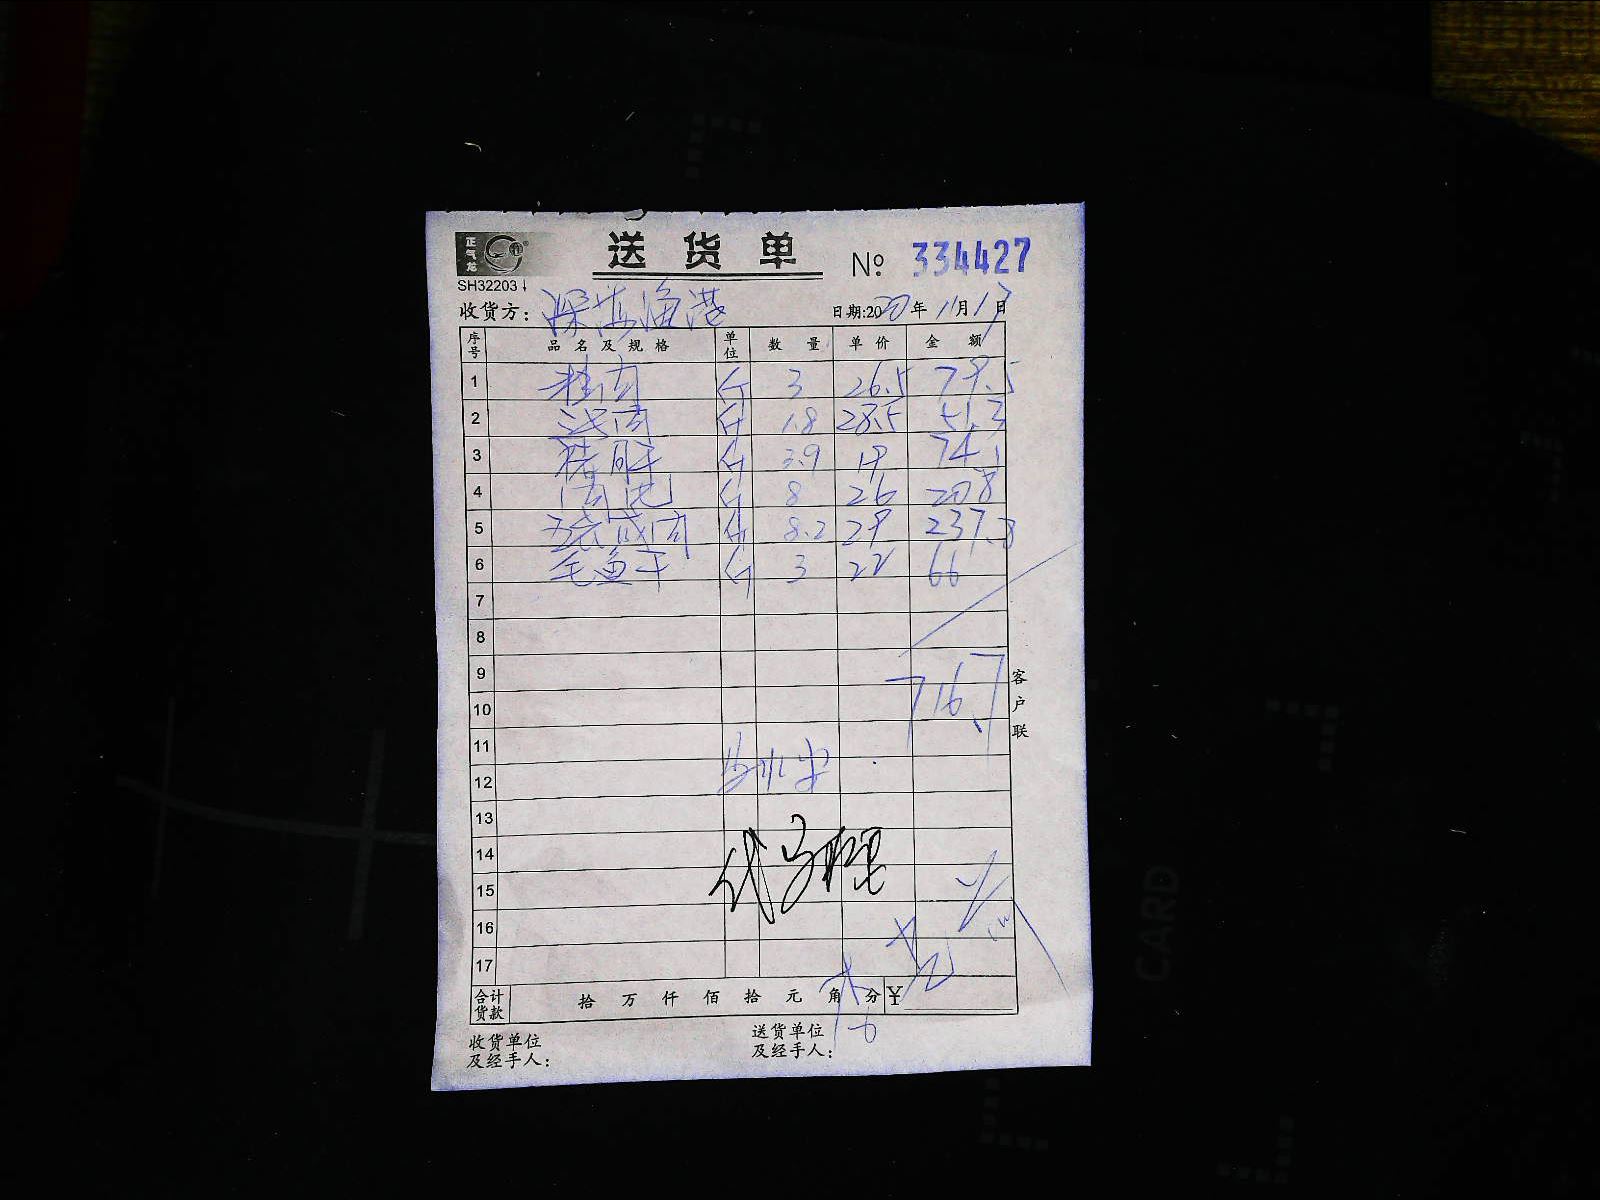 正气龙
送货单 № 334427
SH32203
收货方: 深海渔港 日期:2020年11月17日
序号 品名及规格 单位 数量 单价 金额
1 斤 3 26.5 79.5
2 肉 斤 1.8 28.5 51.3
3 猪肝 斤 3.9 19 74.1
4 斤 8 26 208
5 肉 斤 8.2 29 237.8
6 毛鱼干 斤 3 22 66
7
8
9
716.7
10
11
12
13
14
15
16
17
客户联
合计货款 拾万仟佰拾元角分 ¥
收货单位及经手人:
送货单位及经手人: